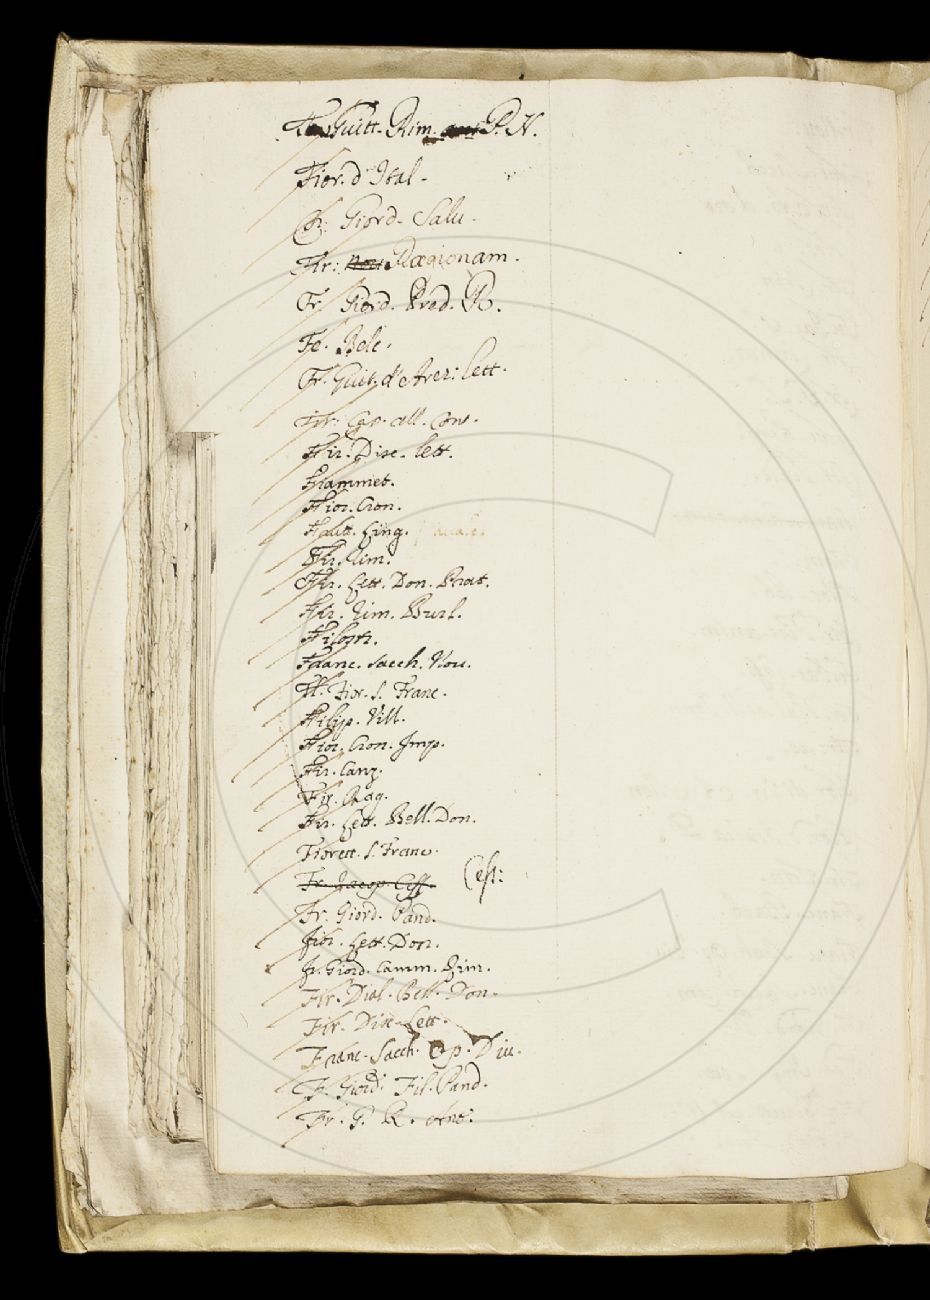 Guitt. Rim. P. N.
Fior. d' Ital.
Fr. Giord. Salu.
Fir: Ragionam.
Fr. Giord. Pred. R.
Fr. Guitt. d' Arez: lett.
Fir: Cap. all. Comp.
Fir. Disc. lett.
Fiammet.
Fior. Cron.
Fir. Rim.
Fir. Lett. Don. Prat.
Fir. Rim. Burl.
Filostr.
Franc. Sacch. Nou.
Fr. Fior. S. Franc.
Filipp. Vill.
Fior. Cron. Imp.
Fir. Canz.
Fir. Rag.
Fir. Lett. Bell. Don.
Fiorett. S. Franc.
Fr. Jacop. Cess. Cess:
Fr. Giord. Pand.
Fir. Lett. Don.
Fr. Giord. Camm. Rim.
Fir. Dial. Bell. Don.
Fir. Disc. Lett.
Franc. Sacch. Op. Diu.
F. Giord. Fil. Pand.
Fr. G. R.